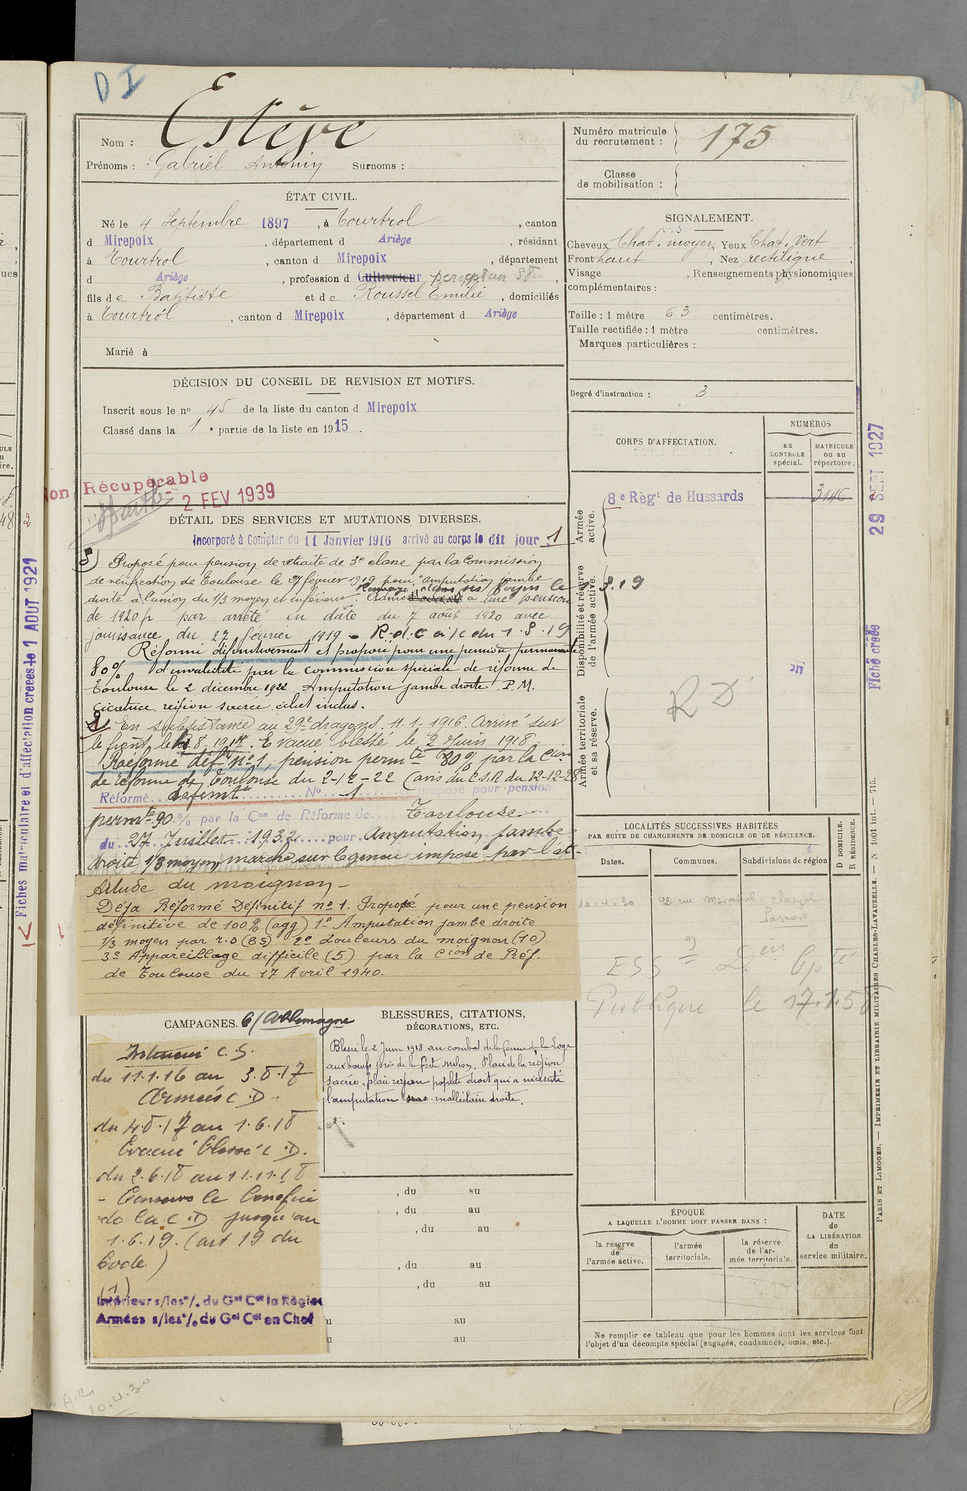 D I
Nom : Estève
Prénoms : Gabriel Antonin Surnoms :
Numéro matricule du recrutement : 175
Classe de mobilisation :
ÉTAT CIVIL.
Né le 4 Septembre 1897, à Tourtrol, canton
d Mirepoix, département d Ariège, résidant
à Tourtrol, canton d Mirepoix, département
d Ariège, profession d Cultivateur percepteur
fils de Baptiste et de Roussel Emilie, domiciliés
à Tourtrol, canton d Mirepoix, département d Ariège
Marié à
SIGNALEMENT.
Cheveux Chat. moyen Yeux Chat. vert
Front haut, Nez rectiligne,
Visage, Renseignements physionomiques
complémentaires :
Taille : 1 mètre 63 centimètres.
Taille rectifiée : 1 mètre centimètres.
Marques particulières :
Degré d'instruction : 3
DÉCISION DU CONSEIL DE REVISION ET MOTIFS.
Inscrit sous le n° 45 de la liste du canton d Mirepoix
Classé dans la 1e partie de la liste en 1915.
on Récupérable
2 FEV 1939
CORPS D'AFFECTATION.
NUMÉROS
au CONTROLE spécial.
MATRICULE ou au répertoire.
Armée active.
8e Règt de Hussards
3146
Disponibilité et réserve de l'armée active.
Armée territoriale et sa réserve.
R D
DÉTAIL DES SERVICES ET MUTATIONS DIVERSES.
Incorporé à Compter du 11 Janvier 1916 arrivé au corps le dit jour 1
Proposé pour pension de retraite de 3e classe par la Commission
de réfection de Toulouse le 27 février 1919 pour "amputation jambe
droite à l'union du 1/3 moyen et inférieur
Renvoyé dans ses foyers le 1.8.19
Admis à une pension
de 1920 f par arrêté en date du 7 août 1920 avec
jouissance du 27 février 1919 - R.d.C à/c du 1.8.19
Réformé définitivement et proposé pour une pension permanente
80% d'invalidité par la commission spéciale de réforme de
Toulouse le 2 décembre 1922 Amputation jambe droite. P.M.
Cicatrice région sacrée éclat inclus.
En subsistance au 29e dragons, 11.1.1916. Arrivé sur
le front, le 4.8.1917. Evacué blessé le 2 Juin 1918
Réformé déf. n° 1, pension permte 80% par la Cion
de réforme de Toulouse du 2-12-22 (avis du C.S.R. du 12-12-28
Réformé définitt N° 1 proposé pour pension
permte 90 % par la Con de Réforme de Toulouse
du 27 Juillet 1932 pour Amputation jambe
droite 1/3 moyen, marche sur le genou imposé par l'at-
titude du moignon -
Déjà Réformé Définitif n° 1. Proposé pour une pension
définitive de 100% (agg) 1° Amputation jambe droite
1/3 moyen par r.o (85) 2° douleurs du moignon (10)
3° Appareillage difficile (5) par la Cion de Réf.
de Toulouse du 17 Avril 1940.
LOCALITÉS SUCCESSIVES HABITÉES
PAR SUITE DE CHANGEMENTS DE DOMICILE OU DE RÉSIDENCE.
Dates. Communes. Subdivisions de région
D DOMICILE. R RÉSIDENCE.
10.4.30
le 17.1.5
CAMPAGNES. C/ Allemagne
Intérieur C.S.
du 11.1.16 au 3.8.17
Armées C.D.
du 4.8.17 au 1.6.18
Evacué blessé C.D.
du 2.6.18 au 11.11.18
- Conserve le bénéfice
de la C.D jusqu'au
1.6.19. (art 19 du
Code)
(1)
Intérieur s/les °/. du Gal Ct la Région
Armées s/les °/. du Gal Ct en Chef
BLESSURES, CITATIONS,
DÉCORATIONS, ETC.
Blessé le 2 Juin 1918 au combat de la ferme de la Loge
aux boeufs près de la ferté milon. Plaie de la région
sacrée, plaie région poplitée droit qui a nécessité
l'amputation malléolaire droite.
, du au
, du au
, du au
, du au
, du au
u au
u au
ÉPOQUE
A LAQUELLE L'HOMME DOIT PASSER DANS :
la réserve de l'armée active.
l'armée territoriale.
la réserve de l'armée territoriale.
DATE de LA LIBÉRATION du service militaire.
Ne remplir ce tableau que pour les hommes dont les services font
l'objet d'un décompte spécial (engagés, condamnés, omis, etc.).
29 SEPT 1927
Fiche créée
PARIS ET LIMOGES. — IMPRIMERIE ET LIBRAIRIE MILITAIRES CHARLES-LAVAUZELLE. — N° 1001 int. — 715.
Fiches matriculaire et d'affectation créées le 1 AOUT 1921
10.4.30